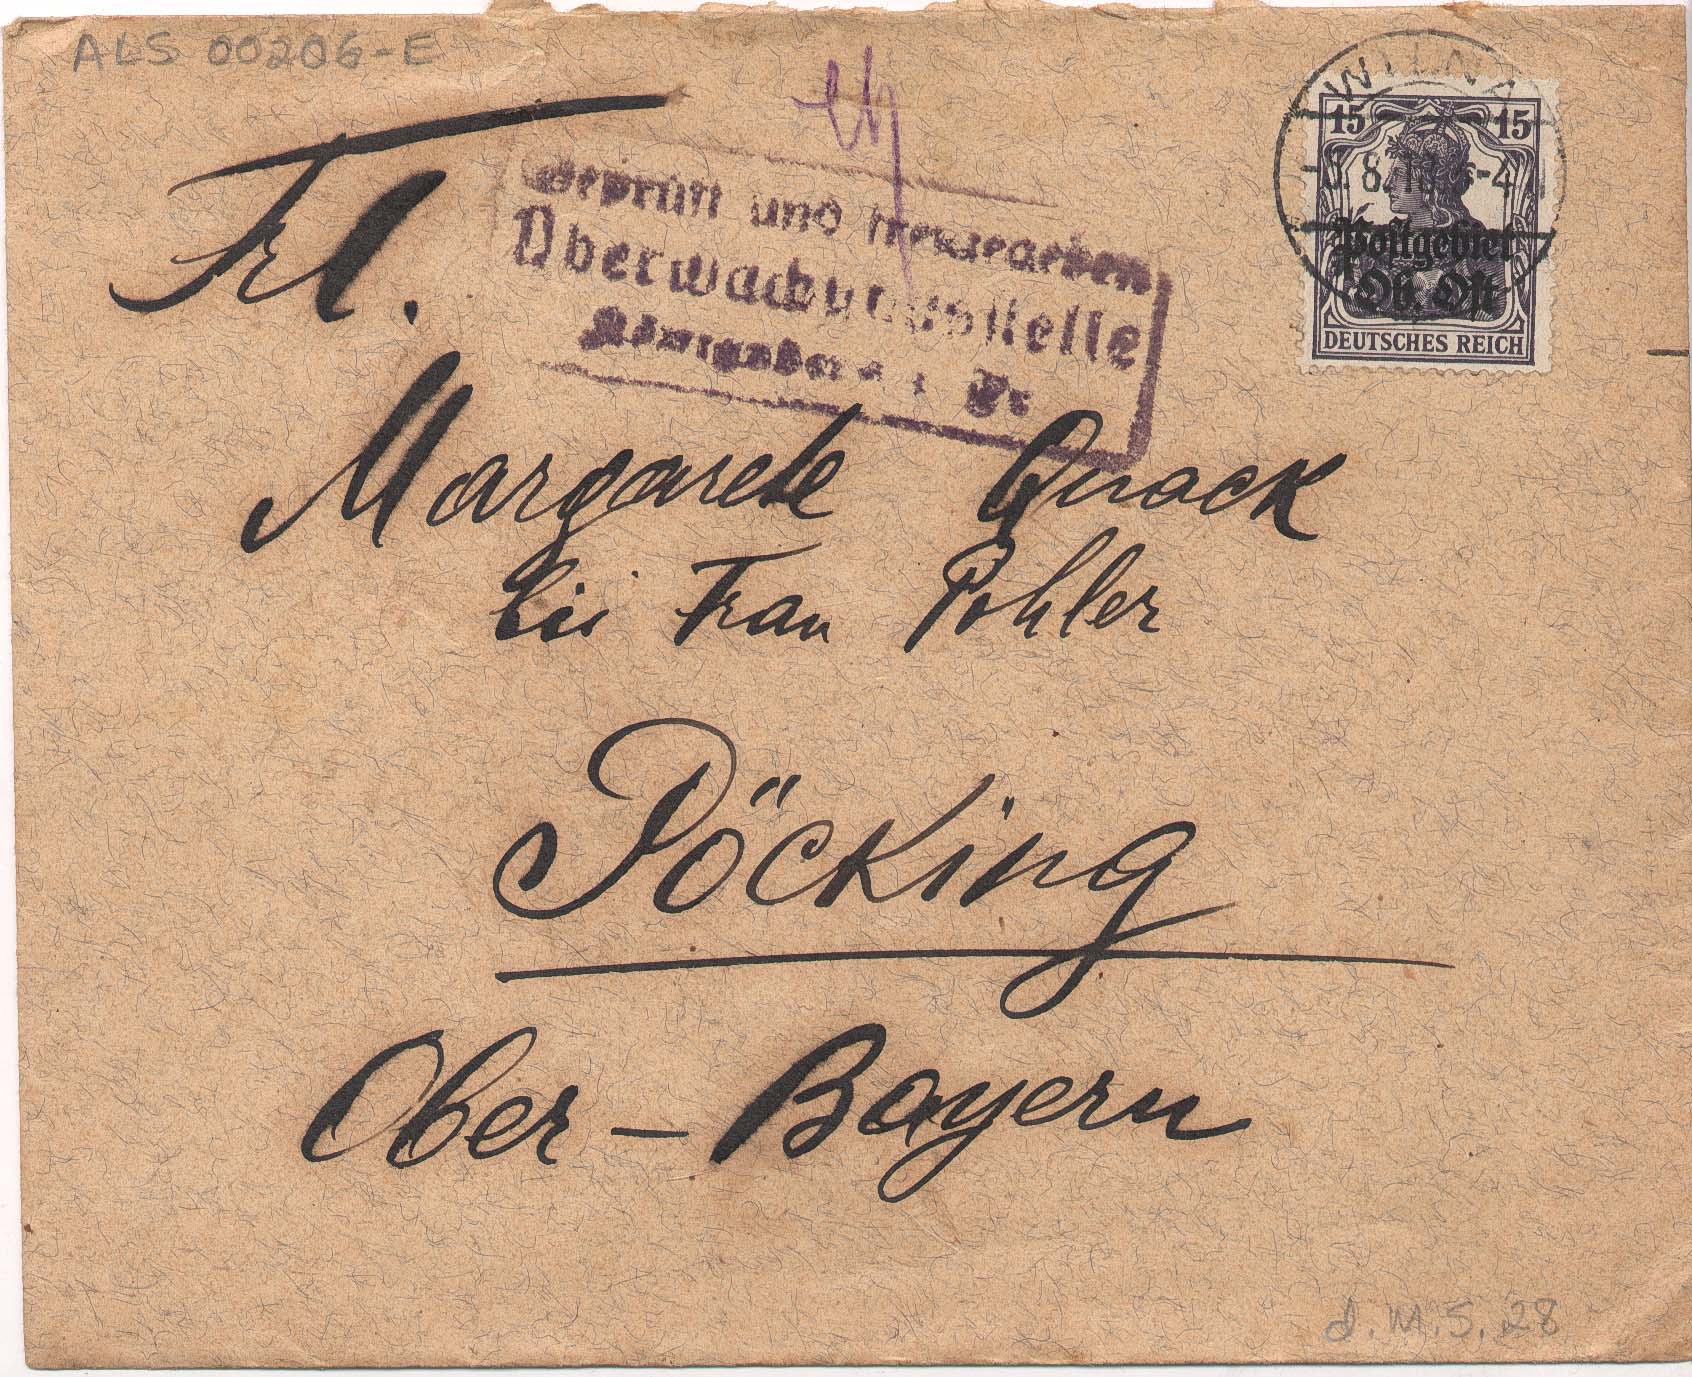 ALS 00206-E
WILNA
8. 18. -4
15 15
Postgebiet
Ob. Ost
DEUTSCHES REICH
Geprüft und freizugeben
Überwachungsstelle
Königsberg i. Pr.
Frl.
Margarete Quack
bei Frau Pohler
Pöcking
Ober-Bayern
d.M.5.28